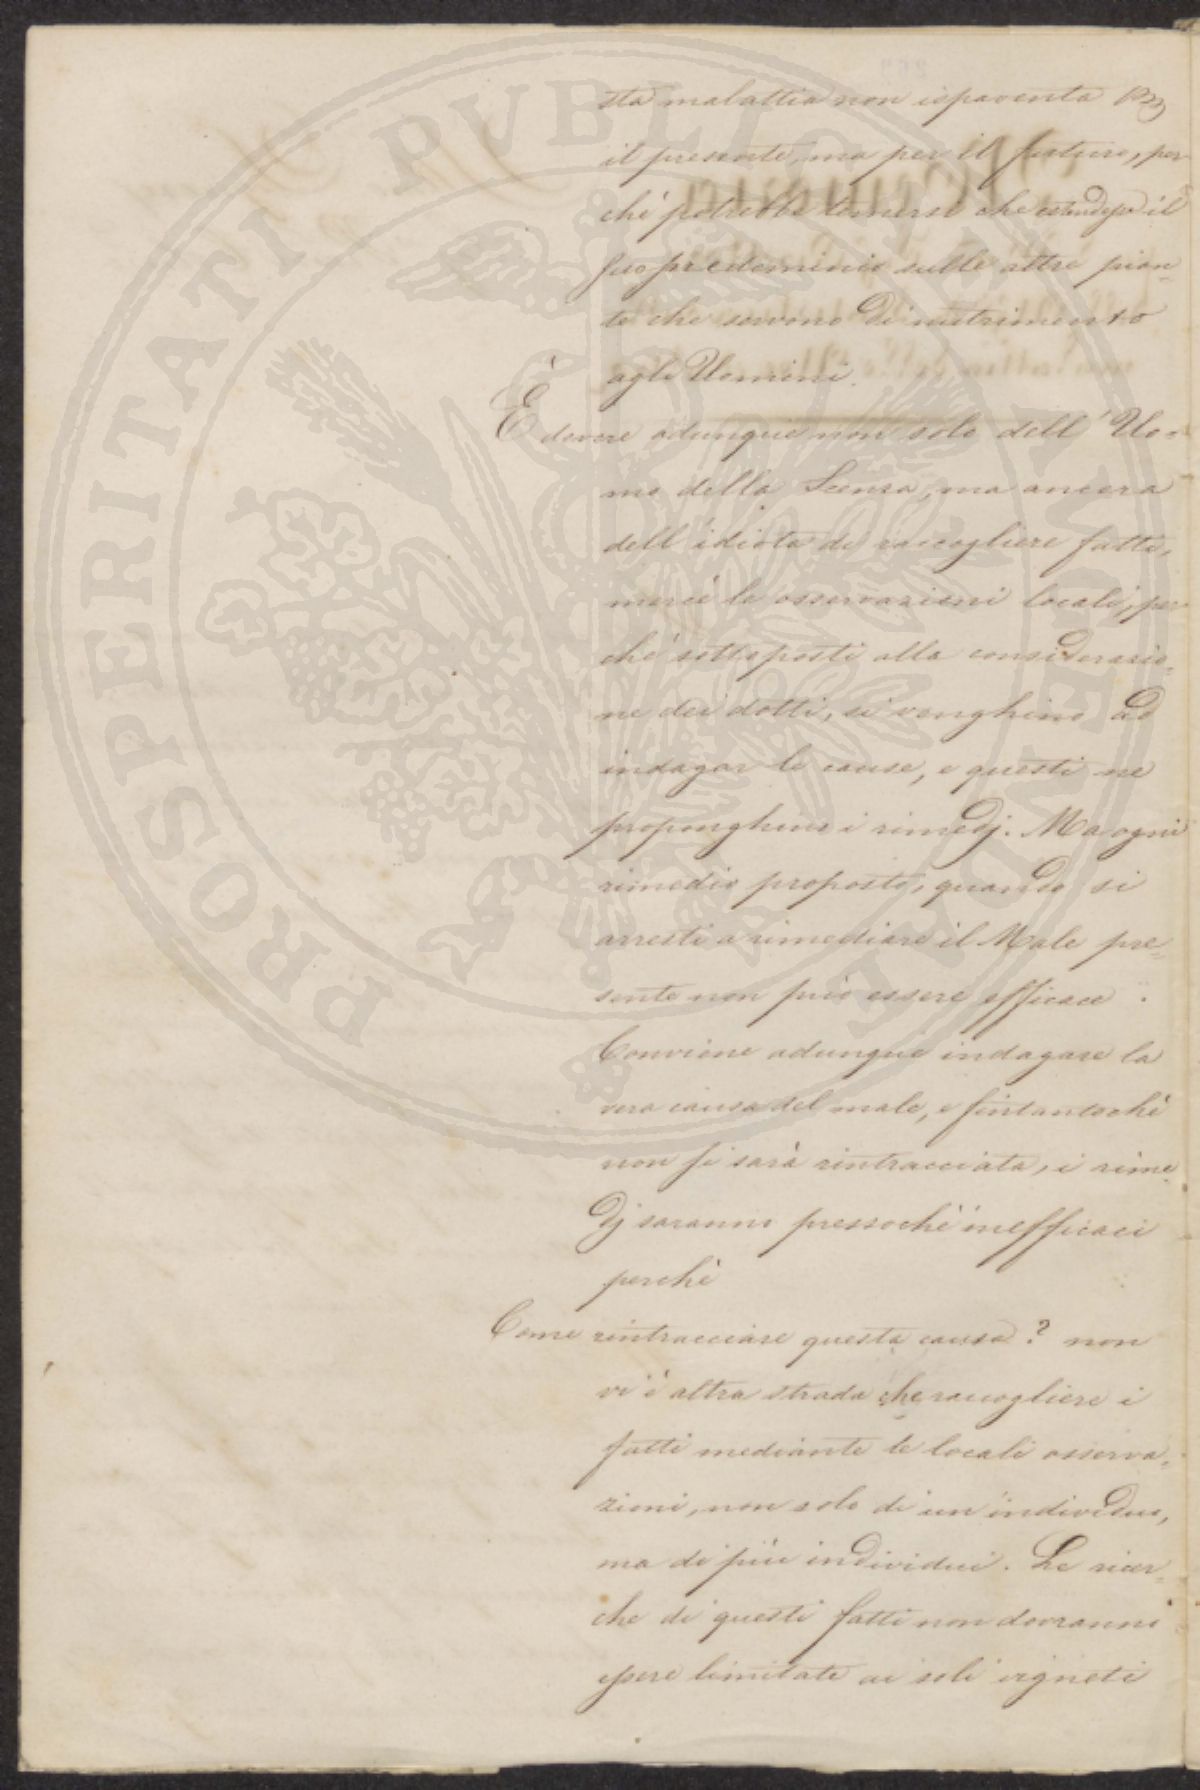 sta malattia non ispaventa per
il presente, ma per il futuro, per
chè potrebbe temersi che estendesse il
suo predominio sulle altre pian=
te che servono di nutrimento
agli Uomini.
È dovere adunque non solo dell' Uo=
mo della Scenza, ma ancora
dell' idiota di raccogliere fatti,
mercè le osservazioni locali, per
chè sottoposti alla considerazio=
ne dei dotti, si venghino ad
indagar le cause, e questi ne
proponghino i rimedj. Ma ogni
rimedio proposto, quando si
arresti a rimediare il Male pre=
sente non può essere efficace.
Conviene adunque indagare la
vera causa del male, e fintantochè
non si sarà rintracciata, i rime=
dj saranno pressochè inefficaci
perchè
Come rintracciare questa causa? non
vi è altra strada che raccogliere i
fatti mediante le locali osserva=
zioni, non solo di un' individuo,
ma di più individui. Le ricer=
che di questi fatti non dovranno
essere limitate ai soli vigneti
PROSPERITATI PUBLICAE AUGENDAE